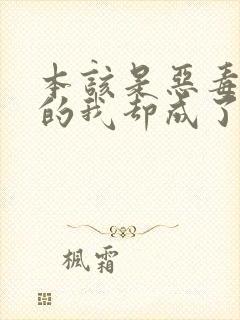 本該是惡毒
的我却成了
楓霜